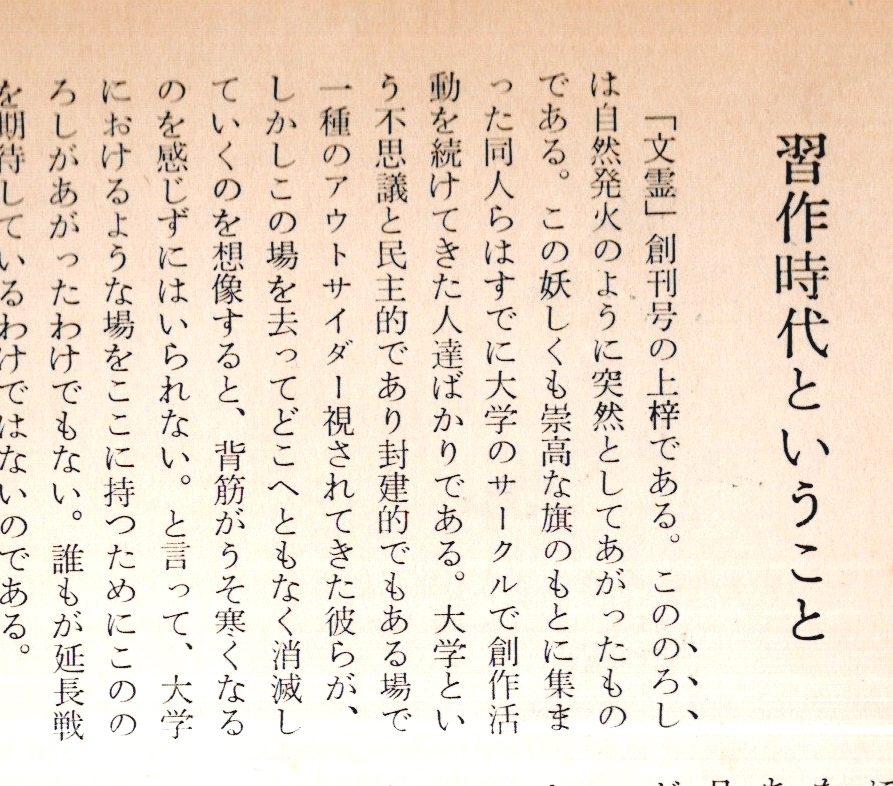 習作時代ということ
「文霊」創刊号の上梓である。こののろし
は自然発火のように突然としてあがったもの
である。この妖しくも崇高な旗のもとに集ま
った同人らはすでに大学のサークルで創作活
動を続けてきた人達ばかりである。大学とい
う不思議と民主的であり封建的でもある場で
一種のアウトサイダー視されてきた彼らが、
しかしこの場を去ってどこへともなく消滅し
ていくのを想像すると、背筋がうそ寒くなる
のを感じずにはいられない。と言って、大学
におけるような場をここに持つためにこのの
ろしがあがったわけでもない。誰もが延長戦
を期待しているわけではないのである。